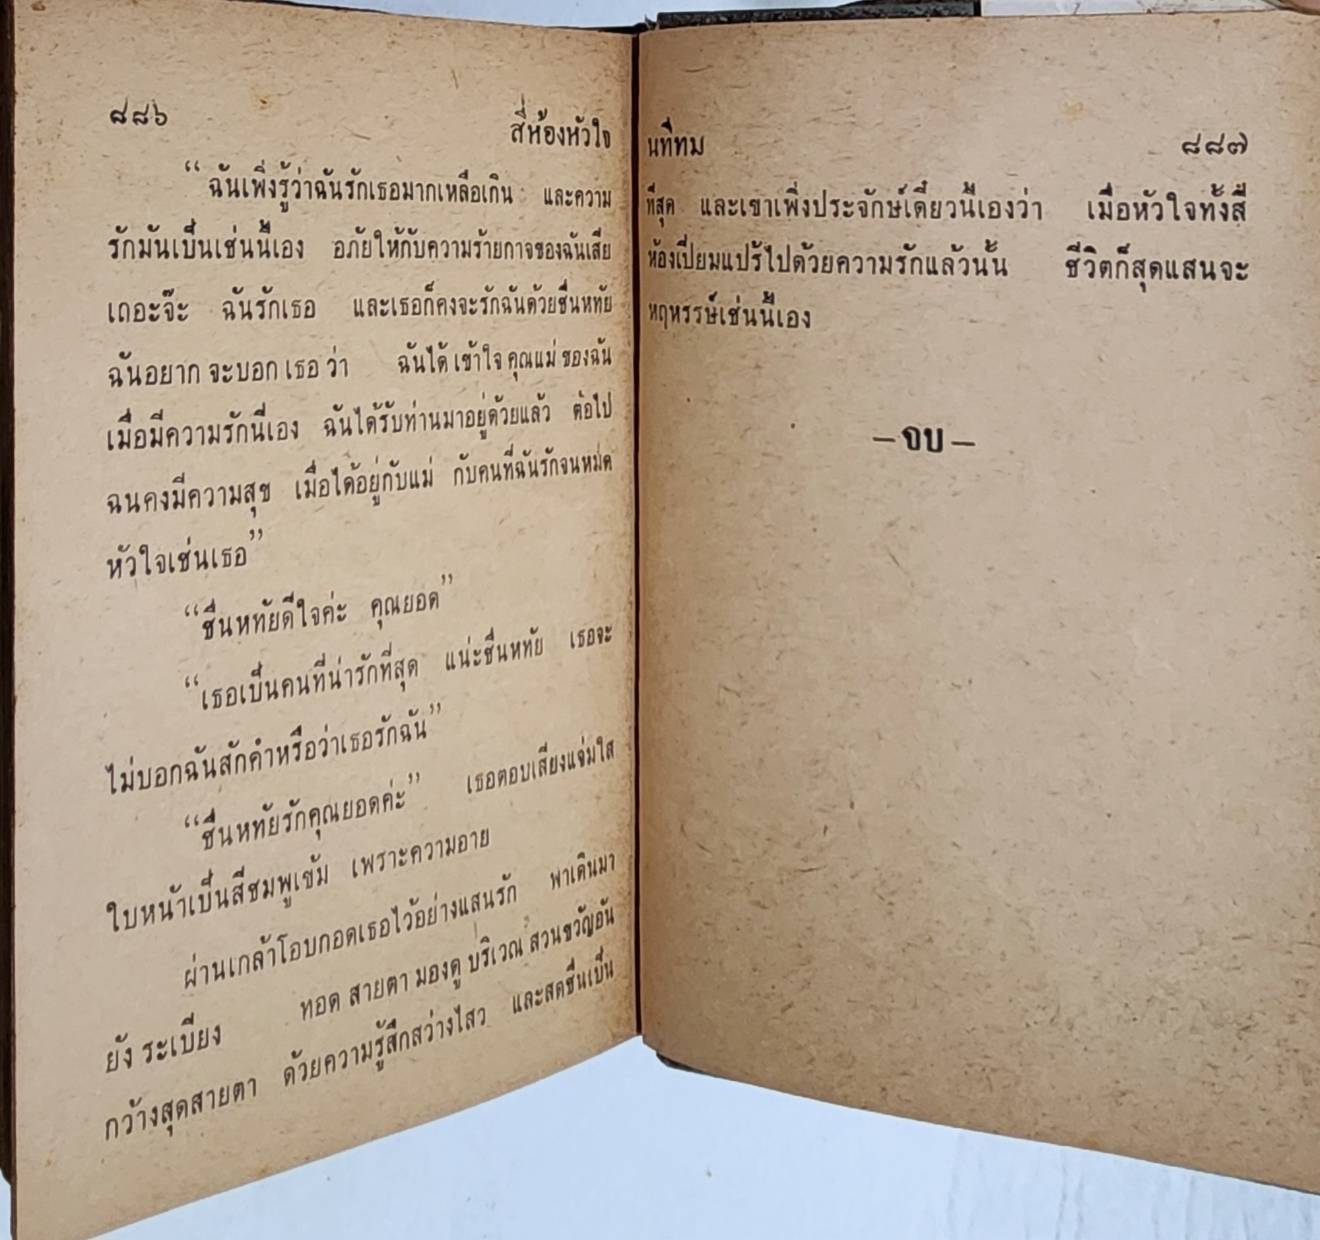 ๘๘๖
สี่ห้องหัวใจ
“ฉันเพิ่งรู้ว่าฉันรักเธอมากเหลือเกิน และความ
รักมันเป็นเช่นนี้เอง อภัยให้กับความร้ายกาจของฉันเสีย
เถอะจ๊ะ ฉันรักเธอ และเธอก็คงจะรักฉันด้วยชื่นหทัย
ฉันอยากจะบอกเธอว่า ฉันได้เข้าใจคุณแม่ของฉัน
เมื่อมีความรักนี่เอง ฉันได้รับท่านมาอยู่ด้วยแล้ว ต่อไป
ฉนคงมีความสุข เมื่อได้อยู่กับแม่ กับคนที่ฉันรักจนหมด
หัวใจเช่นเธอ”
“ชื่นหทัยดีใจค่ะ คุณยอด”
“เธอเป็นคนที่น่ารักที่สุด แน่ะชื่นหทัย เธอจะ
ไม่บอกฉันสักคำหรือว่าเธอรักฉัน”
“ชื่นหทัยรักคุณยอดค่ะ” เธอตอบเสียงแจ่มใส
ใบหน้าเป็นสีชมพูเข้ม เพราะความอาย
ผ่านเกล้าโอบกอดเธอไว้อย่างแสนรัก พาเดินมา
ยังระเบียง ทอดสายตามองดูบริเวณสวนขวัญอัน
กว้างสุดสายตา ด้วยความรู้สึกสว่างไสว และสดชื่นเป็น
นทีทม
๘๘๗
ที่สุด และเขาเพิ่งประจักษ์เดี๋ยวนี้เองว่า เมื่อหัวใจทั้งสี่
ห้องเปี่ยมแปร้ไปด้วยความรักแล้วนั้น ชีวิตก็สุดแสนจะ
หฤหรรษ์เช่นนี้เอง
–จบ–